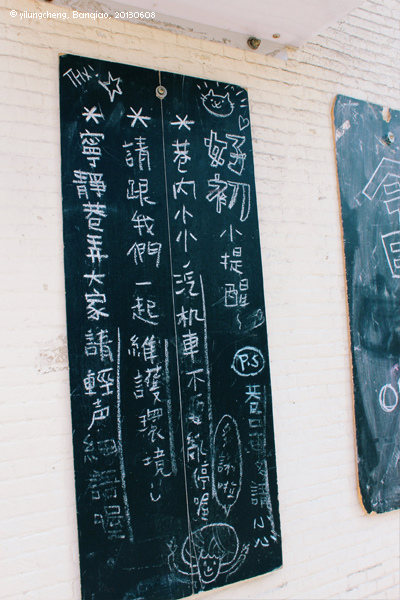 © yilungcheng, Banqiao, 20130608
好初小提醒~
P.S 巷口車多請小心
*巷內小小，汽机車不要亂停喔
謝啦
*請跟我們一起維護環境
*寧靜巷弄大家請輕声細語喔
THX!